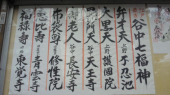 谷中七福神
弁才天 不忍池
大黒天 護国院
毘沙門天 天王寺
寿老人 長安寺
布袋尊 修性院
恵比寿 青雲寺
福禄寿 東覚寺